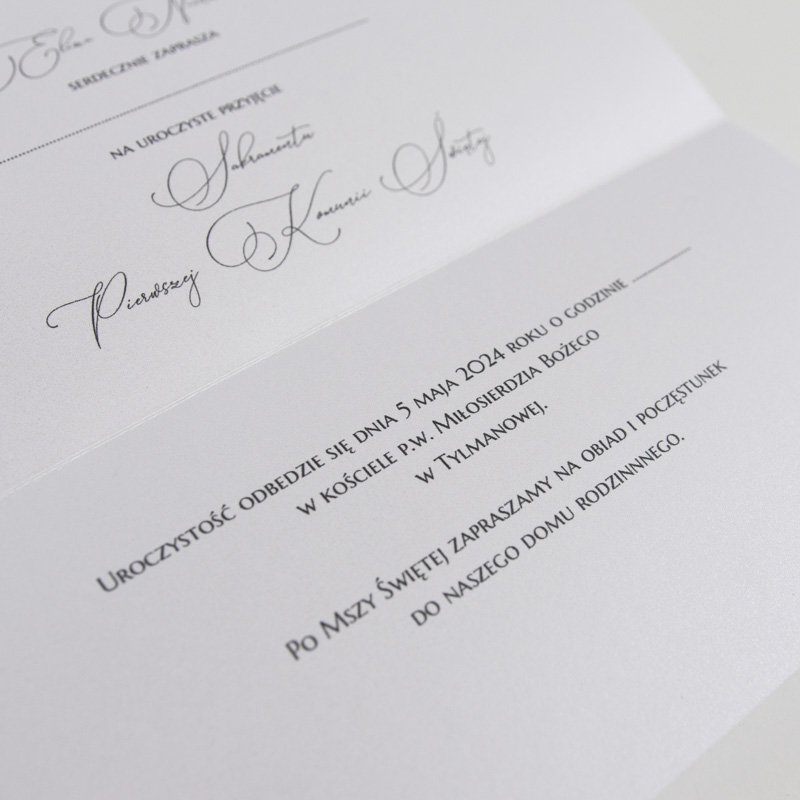 Eliza
SERDECZNIE ZAPRASZA
NA UROCZYSTE PRZYJĘCIE
Sakramentu
Pierwszej Komunii Świętej
UROCZYSTOŚĆ ODBEDZIE SIĘ DNIA 5 MAJA 2024 ROKU O GODZINIE
W KOŚCIELE P.W. MIŁOSIERDZIA BOŻEGO
W TYLMANOWEJ.
PO MSZY ŚWIĘTEJ ZAPRASZAMY NA OBIAD I POCZĘSTUNEK
DO NASZEGO DOMU RODZINNNEGO.